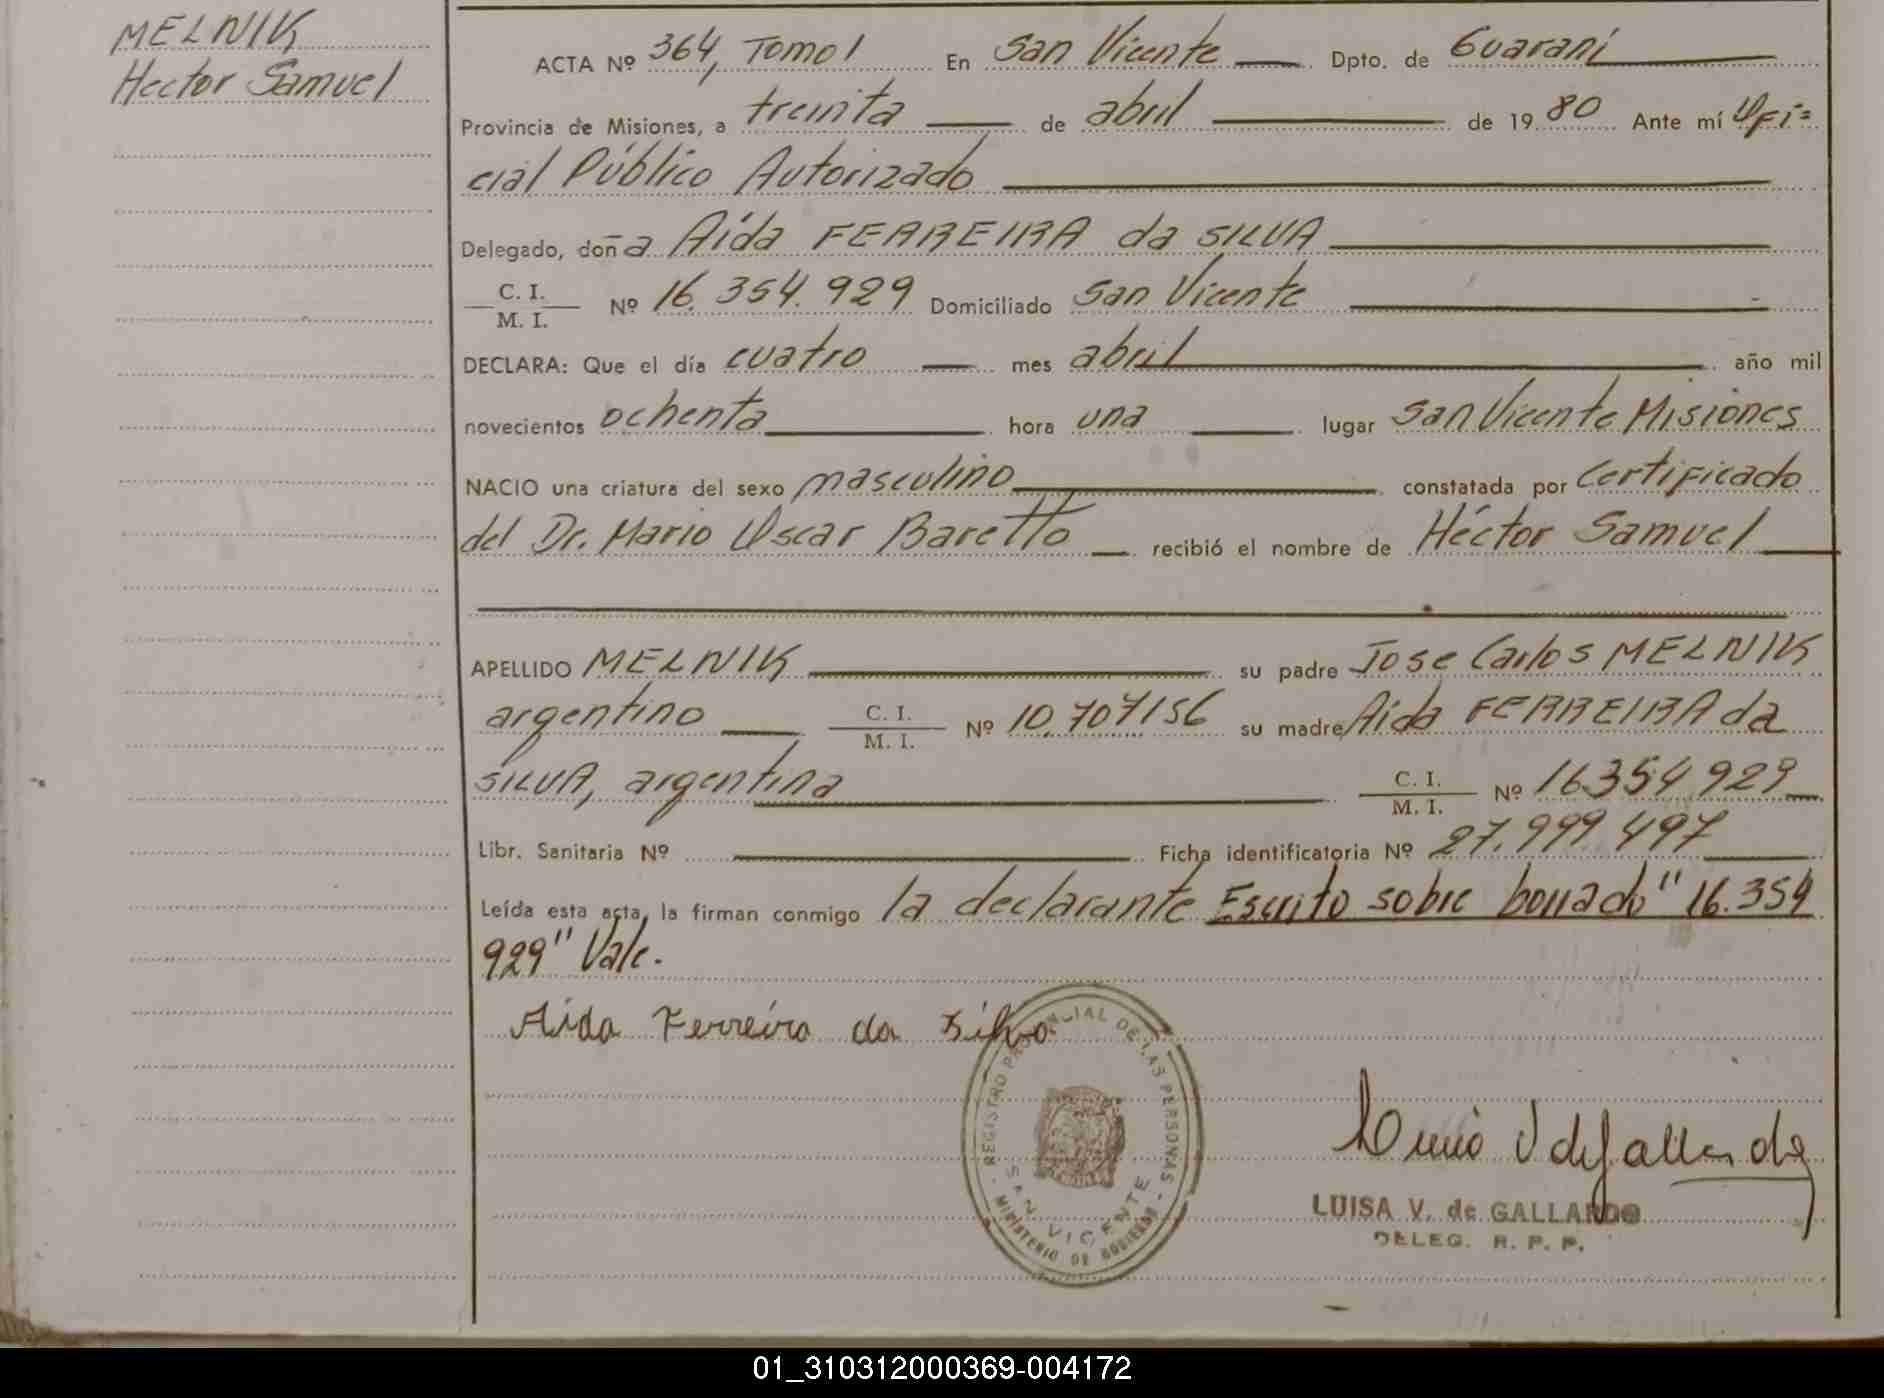 MELNIK
Hector Samuel
ACTA Nº 364, Tomo I En San Vicente Dpto. de Guaraní
Provincia de Misiones, a treinta de abril de 1980 Ante mí Ofi=
cial Público Autorizado
Delegado, doña Aída FERREIRA da SILVA
C. I.
M. I. Nº 16.354.929 Domiciliado San Vicente
DECLARA: Que el día cuatro mes abril año mil
novecientos ochenta hora una lugar San Vicente Misiones
NACIO una criatura del sexo masculino constatada por Certificado
del Dr. Mario Oscar Baretto recibió el nombre de Héctor Samuel
APELLIDO MELNIK su padre Jose Carlos MELNIK
argentino C. I.
M. I. Nº 10.707156 su madre Aida FERREIRA da
SILVA, argentina C. I.
M. I. Nº 16354929
Libr. Sanitaria Nº Ficha identificatoria Nº 27.999.497
Leída esta acta, la firman conmigo la declarante Escrito sobre borrado "16.354
929" Vale.
Aida Ferreira da Silva
REGISTRO PROVINCIAL DE LAS PERSONAS
SAN VICENTE
MINISTERIO DE GOBIERNO
LUISA V. de GALLARDO
DELEG. R. P. P.
01_310312000369-004172